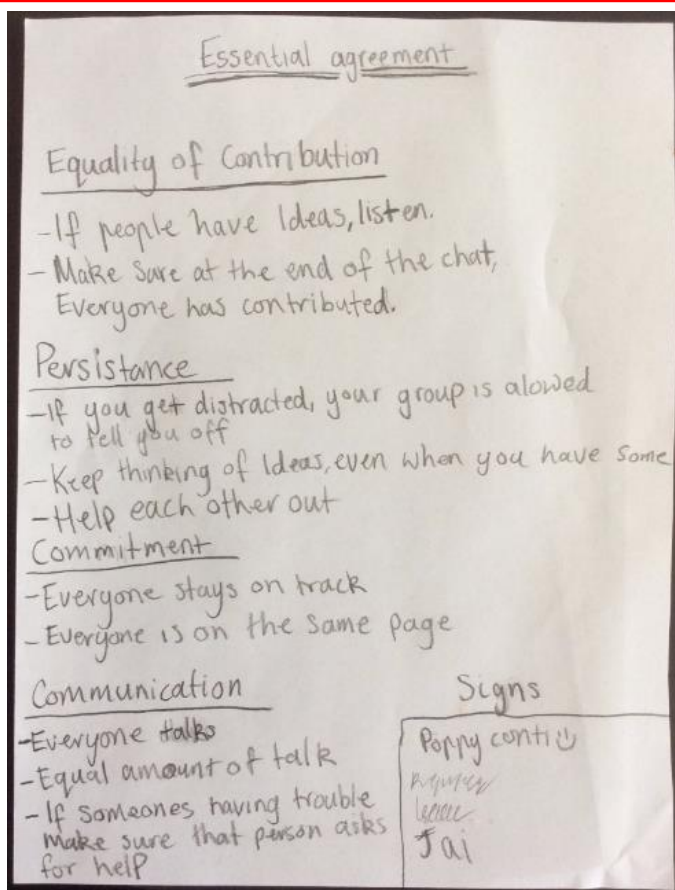 Essential agreement
Equality of Contribution
-If people have Ideas, listen.
- Make Sure at the end of the chat,
Everyone has contributed.
Persistance
-If you get distracted, your group is alowed
to tell you off
-Keep thinking of Ideas, even when you have some
-Help each other out
Commitment
-Everyone stays on track
- Everyone is on the same page
Communication
-Everyone talks
-Equal amount of talk
- If someones having trouble
make sure that person asks
for help
Signs
Poppy conti
Jai